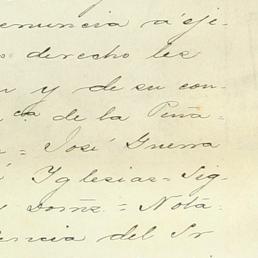 enuncia á eje-
derecho les
y de su con-
ca de la Peña-
= José Guerra
Yglesias = Sig-
= Nota-
encia del Sr